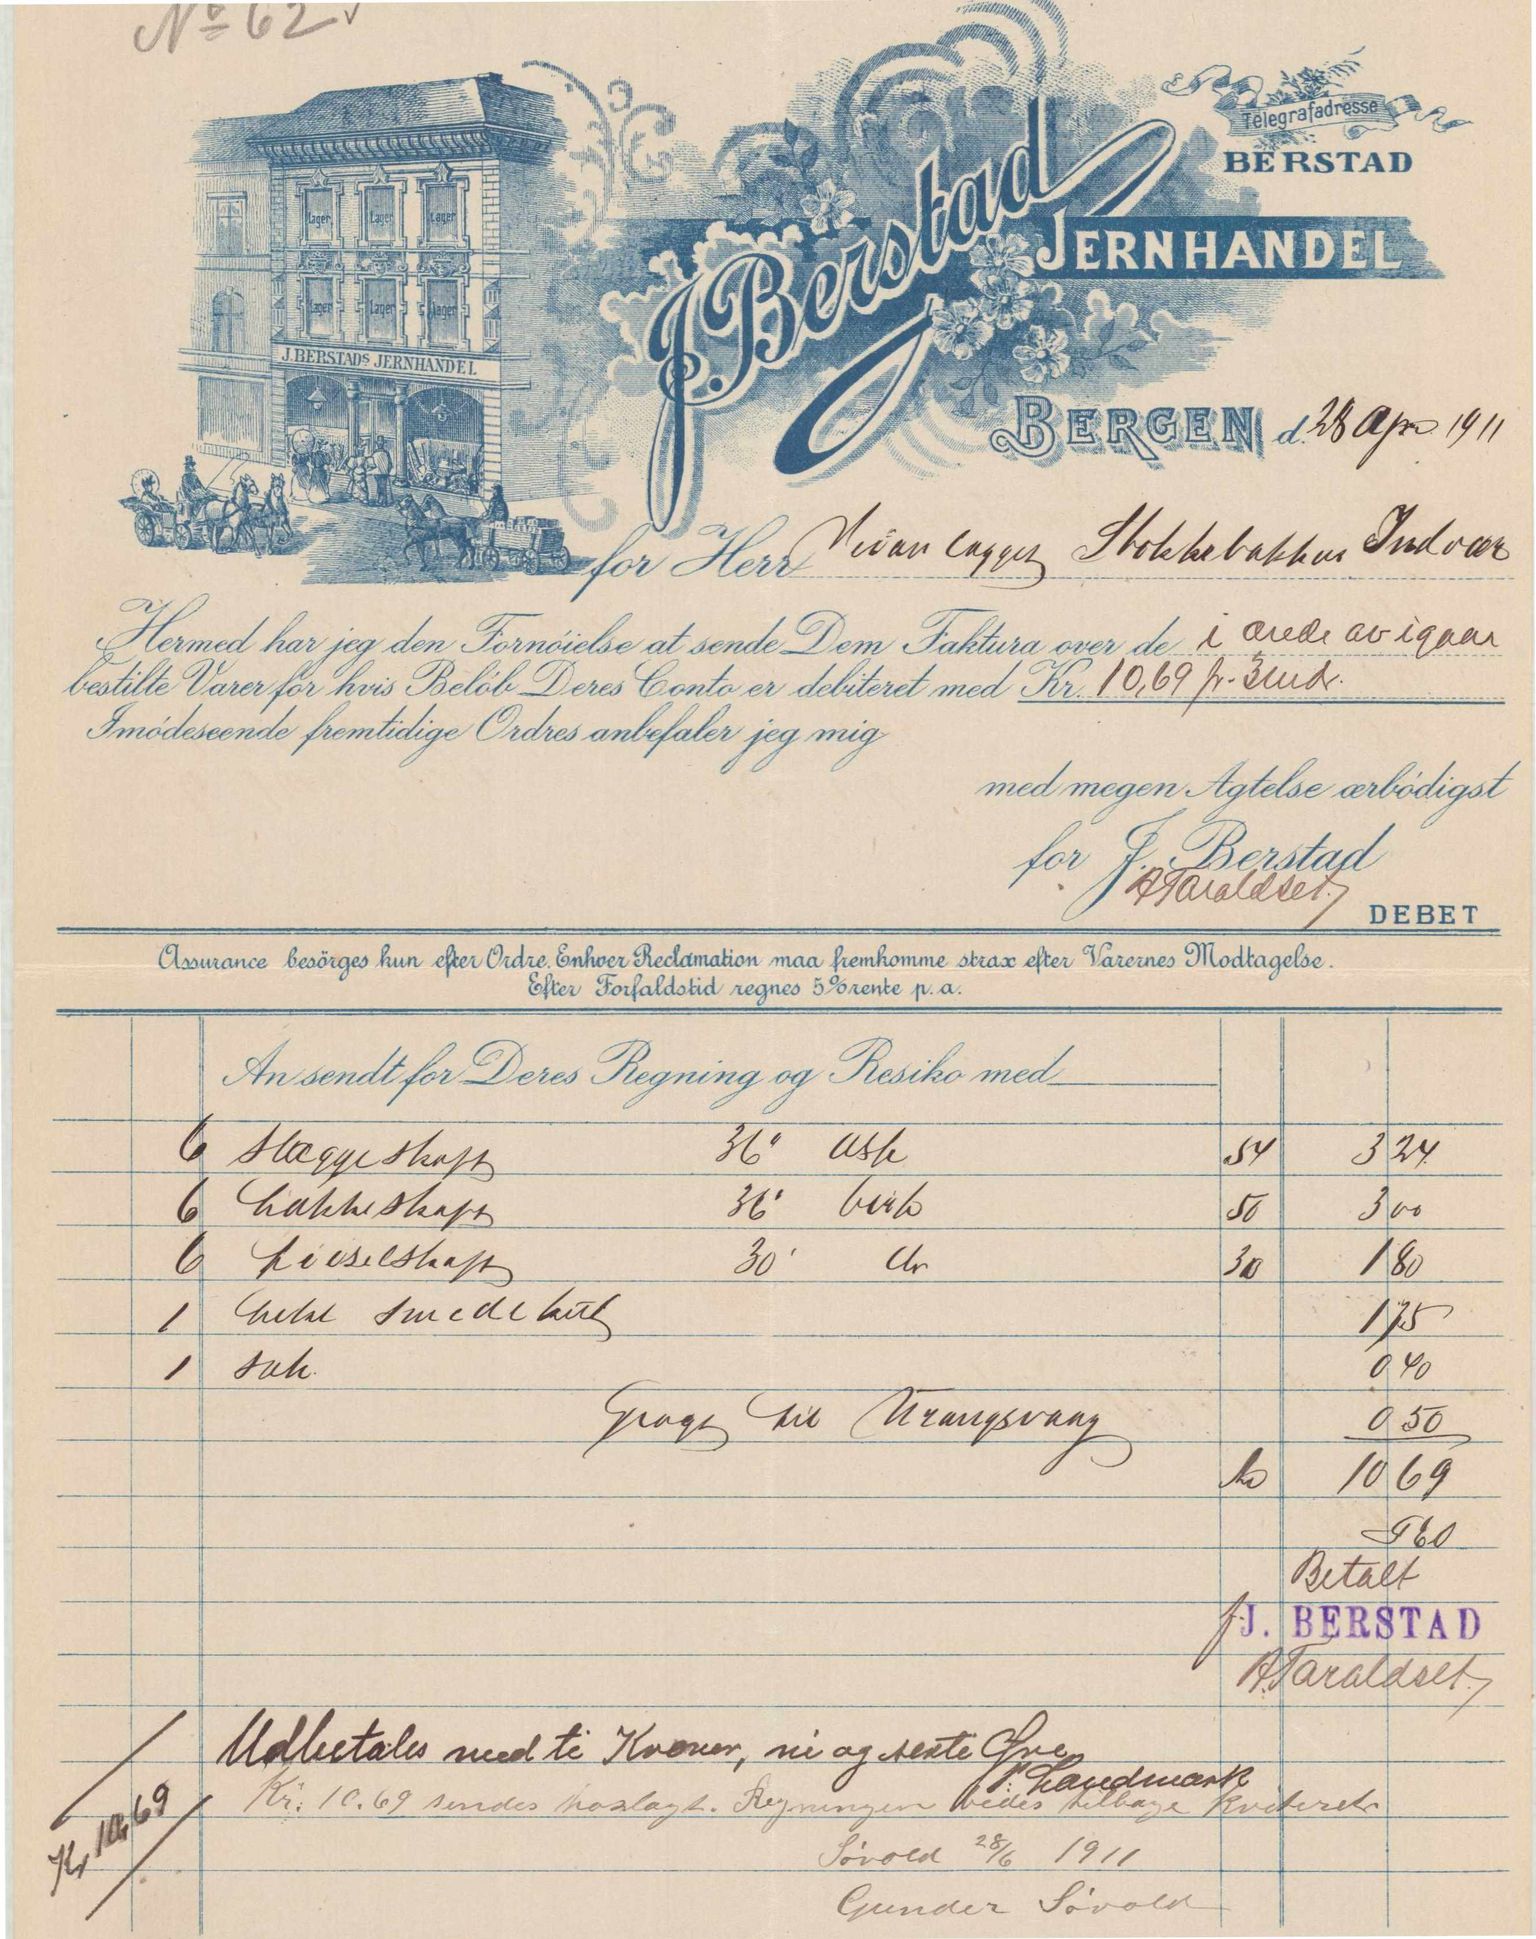 No 62
Telegrafadresse
BERSTAD
J. Berstad
JERNHANDEL
Lager Lager Lager
Lager Lager Lager
J. BERSTADS JERNHANDEL
BERGEN d. 28 Apr 1911
for Herr Veianlægget Stokkebakken Indvær
Hermed har jeg den Fornöielse at sende Dem Faktura over de i ordre av igaar
bestilte Varer for hvis Belöb Deres Conto er debiteret med Kr. 10,69 pr. 3 md.
Imödeseende fremtidige Ordres anbefaler jeg mig
med megen Agtelse ærbödigst
for J. Berstad
A Taraldset
DEBET
Assurance besörges kun efter Ordre. Enhver Reclamation maa fremkomme strax efter Varernes Modtagelse.
Efter Forfaldstid regnes 5% rente p. a.
An sendt for Deres Regning og Resiko med
6 slæggeskaft 36" ask 54 3 24
6 hakkeskaft 36" birk 50 3 00
6 feiselskaft 30" do 30 1 80
1 hekt smedekul 1 75
1 sæk 0 40
Fragt til Vrangsvaag 0 50
Kr 10 69
Betalt
f. J. BERSTAD
A. Taraldset
Udbetales med ti Kroner, ni og sexti Øre
P. Landmark
Kr. 10.69 sendes hoslagt. Regningen bedes tilbage kvitteret
Søvold 28/6 1911
Gunder Søvold
Kr 10,69